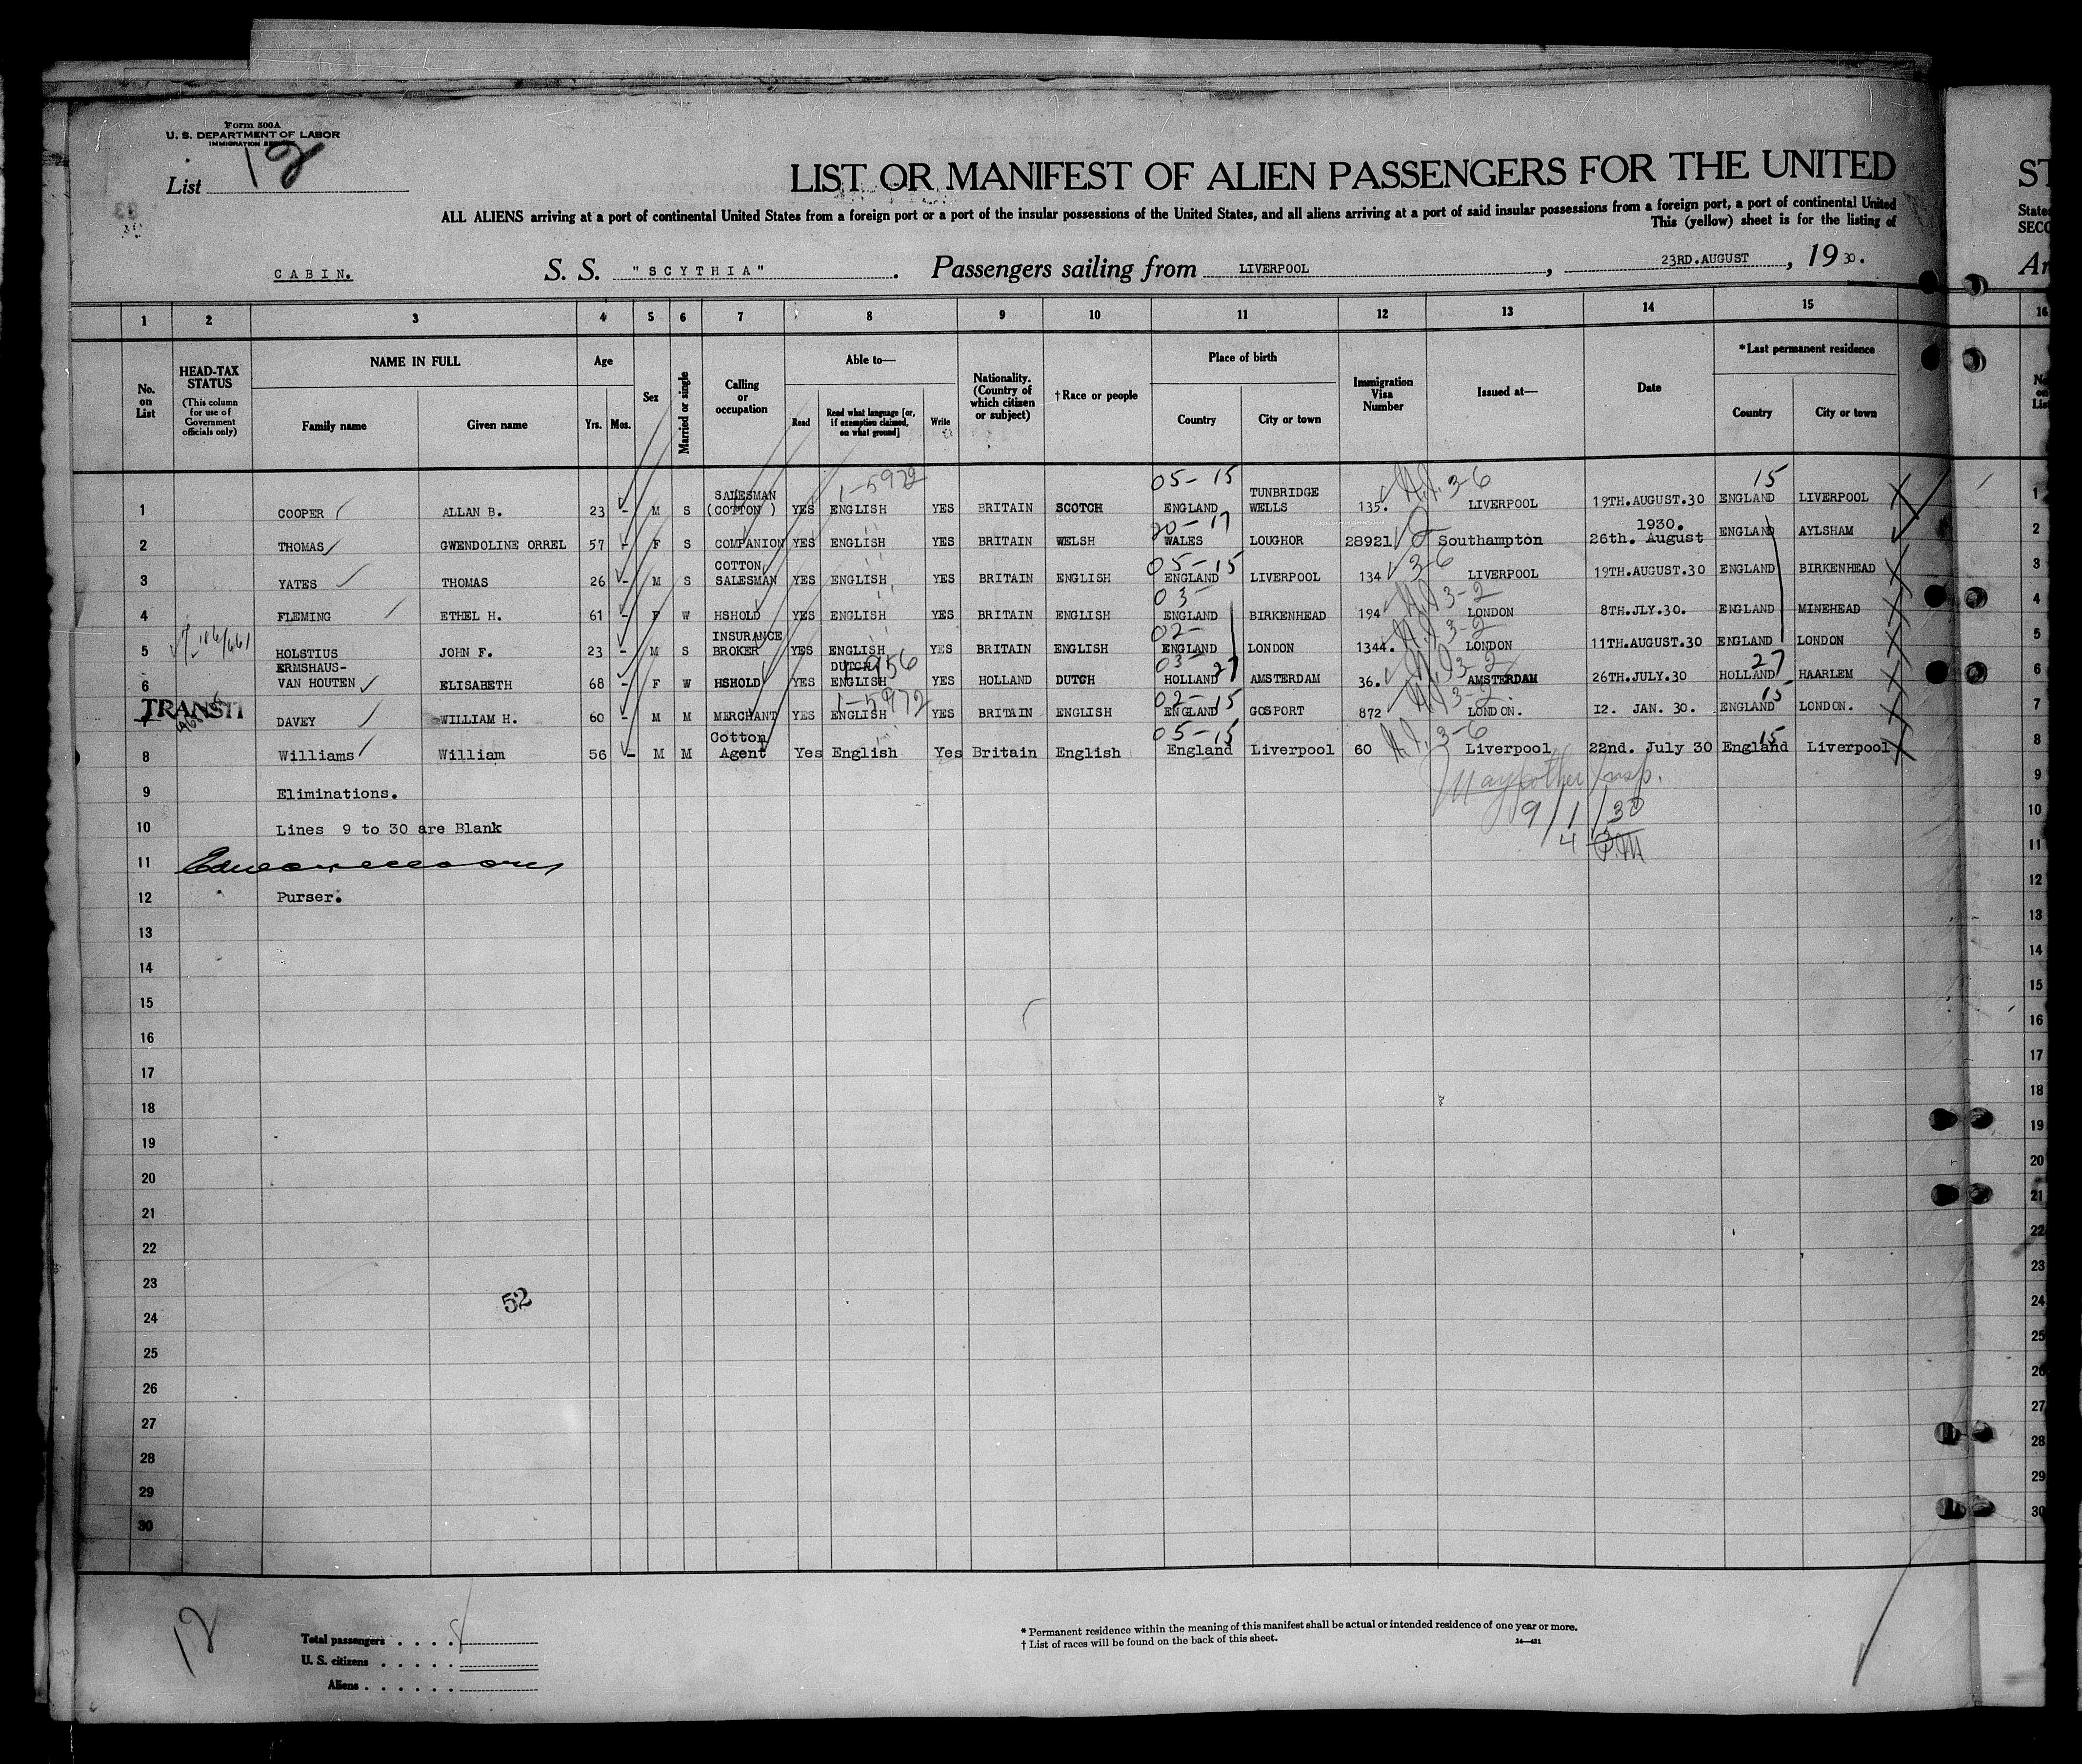 Form 500A
U. S. DEPARTMENT OF LABOR
IMMIGRATION SERVICE
List 12
LIST OR MANIFEST OF ALIEN PASSENGERS FOR THE UNITED
ALL ALIENS arriving at a port of continental United States from a foreign port or a port of the insular possessions of the United States, and all aliens arriving at a port of said insular possessions from a foreign port, a port of continental United
This (yellow) sheet is for the listing of
CABIN. S. S. "SCYTHIA" . Passengers sailing from LIVERPOOL , 23RD.AUGUST , 19 30.
1 2 3 4 5 6 7 8 9 10 11 12 13 14 15
No. on List
HEAD-TAX STATUS (This column for use of Government officials only)
NAME IN FULL
Family name Given name
Age
Yrs. Mos.
Sex
Married or single
Calling or occupation
Able to—
Read Read what language [or, if exemption claimed, on what ground] Write
Nationality. (Country of which citizen or subject)
†Race or people
Place of birth
Country City or town
Immigration Visa Number
Issued at—
Date
*Last permanent residence
Country City or town
1 COOPER ALLAN B. 23 - M S SALESMAN (COTTON) YES ENGLISH 1-5972 YES BRITAIN SCOTCH 05-15 ENGLAND TUNBRIDGE WELLS 135. 3-6 LIVERPOOL 19TH.AUGUST.30 15 ENGLAND LIVERPOOL 1
2 THOMAS GWENDOLINE ORREL 57 - F S COMPANION YES ENGLISH YES BRITAIN WELSH 20-17 WALES LOUGHOR 28921 Southampton 26th. August 1930. ENGLAND AYLSHAM 2
3 YATES THOMAS 26 - M S COTTON SALESMAN YES ENGLISH YES BRITAIN ENGLISH 05-15 ENGLAND LIVERPOOL 134 3-6 LIVERPOOL 19TH.AUGUST.30 ENGLAND BIRKENHEAD 3
4 FLEMING ETHEL H. 61 - F W HSHOLD YES ENGLISH YES BRITAIN ENGLISH 03- ENGLAND BIRKENHEAD 194 3-2 LONDON 8TH.JLY.30. ENGLAND MINEHEAD 4
5 HOLSTIUS JOHN F. 23 - M S INSURANCE BROKER YES ENGLISH YES BRITAIN ENGLISH 02- ENGLAND LONDON 1344. 3-2 LONDON 11TH.AUGUST.30 ENGLAND LONDON 5
6 ERMSHAUS-VAN HOUTEN ELISABETH 68 - F W HSHOLD YES DUTCH ENGLISH YES HOLLAND DUTCH 03- 27 HOLLAND AMSTERDAM 36. 3-2 AMSTERDAM 26TH.JULY.30 27 HOLLAND HAARLEM 6
TRANSIT
7 DAVEY WILLIAM H. 60 - M M MERCHANT YES ENGLISH 1-5972 YES BRITAIN ENGLISH 02-15 ENGLAND GOSPORT 872 3-2 LONDON. 12. JAN. 30. 15 ENGLAND LONDON. 7
8 Williams William 56 - M M Cotton Agent Yes English Yes Britain English 05-15 England Liverpool 60 3-6 Liverpool 22nd. July 30 15 England Liverpool 8
9 Eliminations. 9
9/1/30
10 Lines 9 to 30 are Blank 10
4 P.M
11 11
12 Purser. 12
13 13
14 14
15 15
16 16
17 17
18 18
19 19
20 20
21 21
22 22
23 23
52
24 24
25 25
26 26
27 27
28 28
29 29
30 30
12
Total passengers . . . . 8
U. S. citizens . . . . .
Aliens . . . . . .
* Permanent residence within the meaning of this manifest shall be actual or intended residence of one year or more.
† List of races will be found on the back of this sheet.
14—421